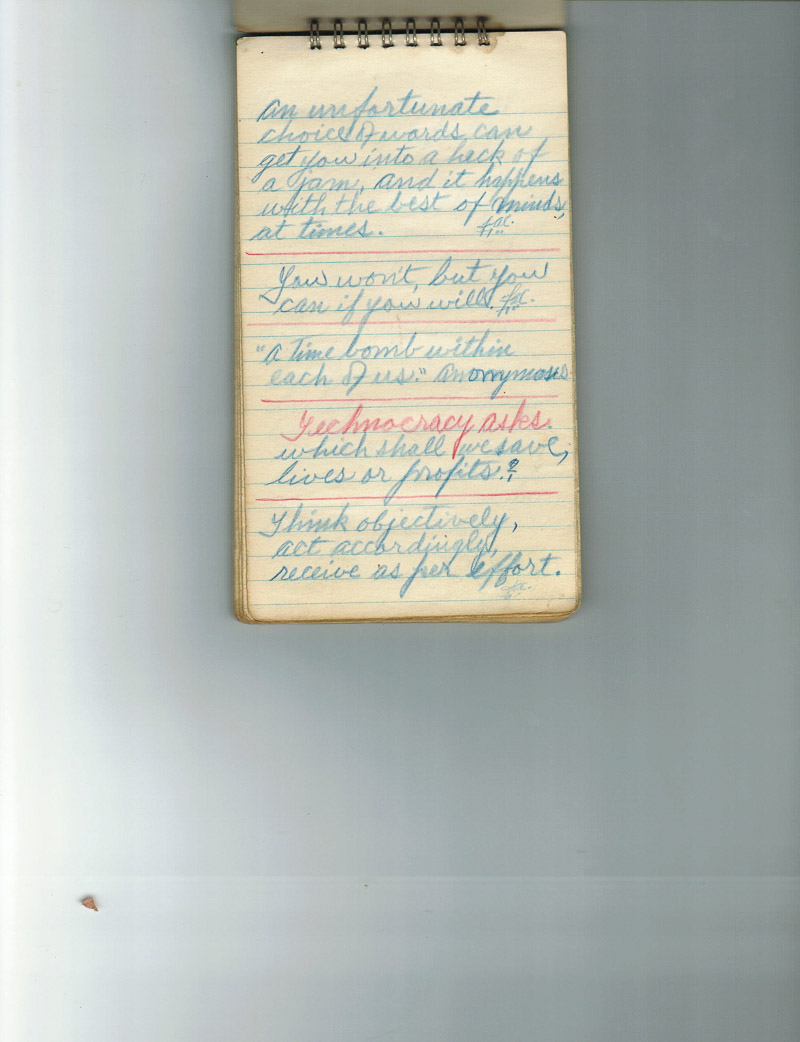 an unfortunate
choice of words can
get you into a heck of
a jam, and it happens
with the best of minds,
at times.
You won't, but you
can if you will.
"a time bomb within
each of us." anonymous
Technocracy asks.
which shall we save,
lives or profits.?
Think objectively,
act accordingly,
receive as per effort.